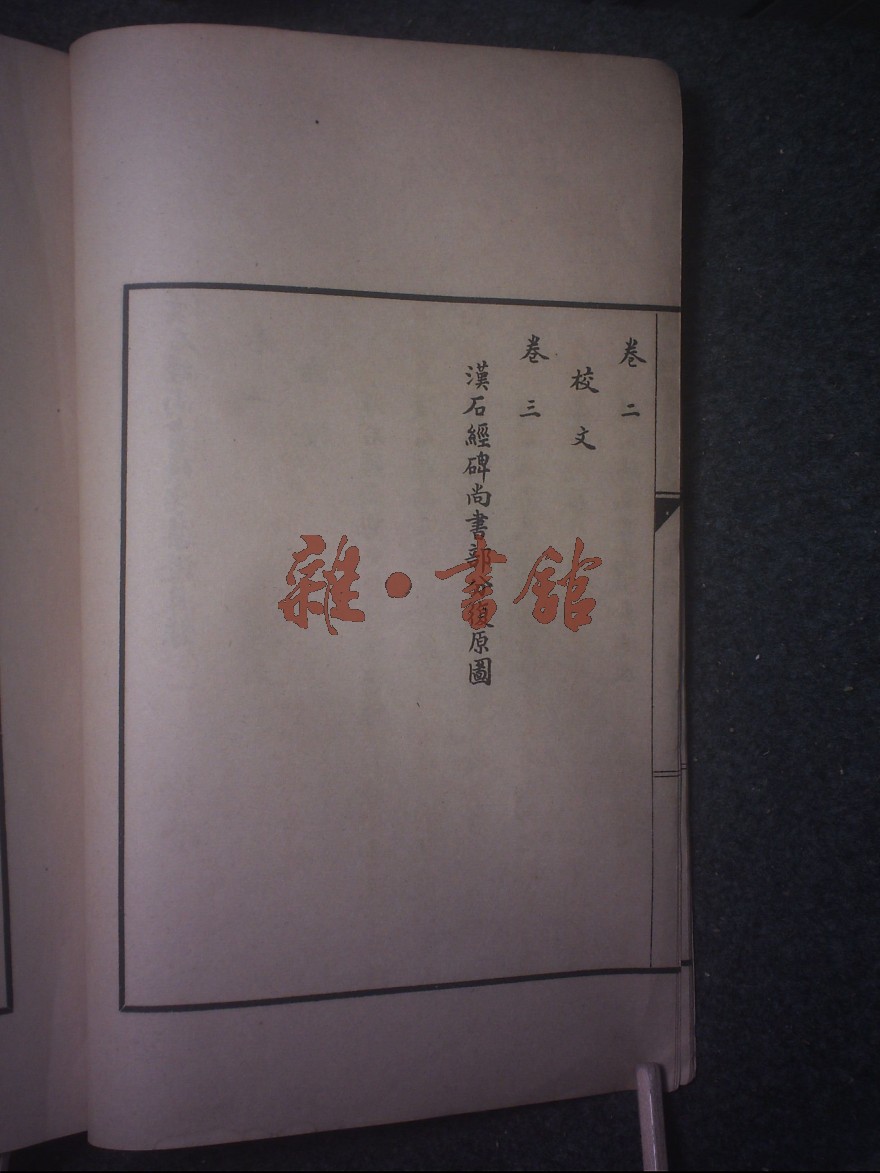 卷二
校文
卷三
漢石經碑尚書部分復原圖
雜·書館